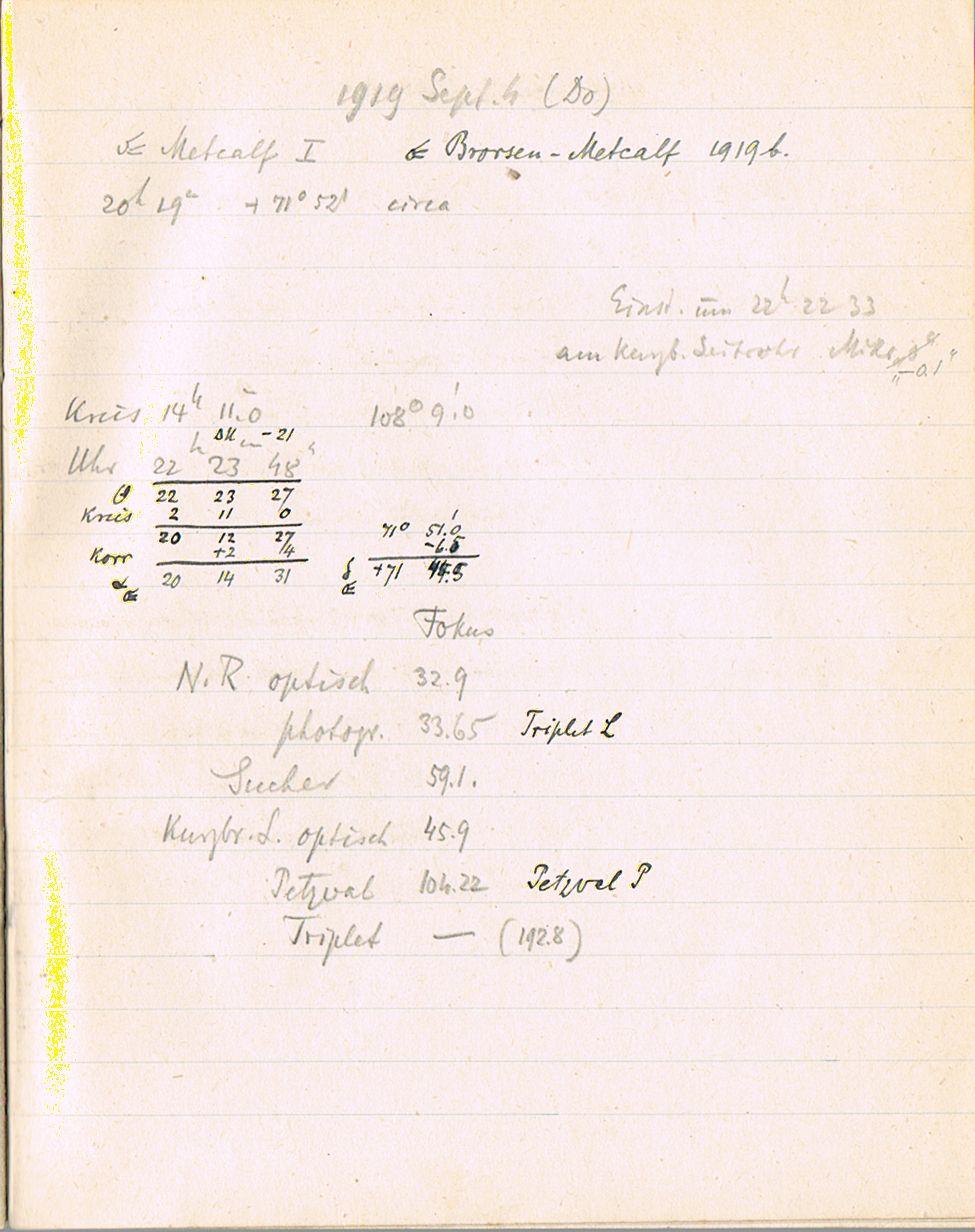 1919 Sept. 4 (Do)
☄ Metcalf I ☄ Brorsen-Metcalf 1919 b.
20h 19m +71° 52' circa
Einst. um 22h 22 33
am kurzb. Leitrohr Mikr.
"-0.1"
Kreis 14h 11m.0 108° 9'.0
ΔU -21
Uhr 22h 23m 48s
Θ 22 23 27
Kreis 2 11 0 71° 51'.0
20 12 27 -6.5
Korr +2 4
α☄ 20 14 31 δ☄ +71 44.5
Fokus
N.R. optisch 32.9
photogr. 33.65 Triplet L
Sucher 59.1.
Kurzbr. L. optisch 45.9
Petzval 104.22 Petzval P
Triplet — (192.8)